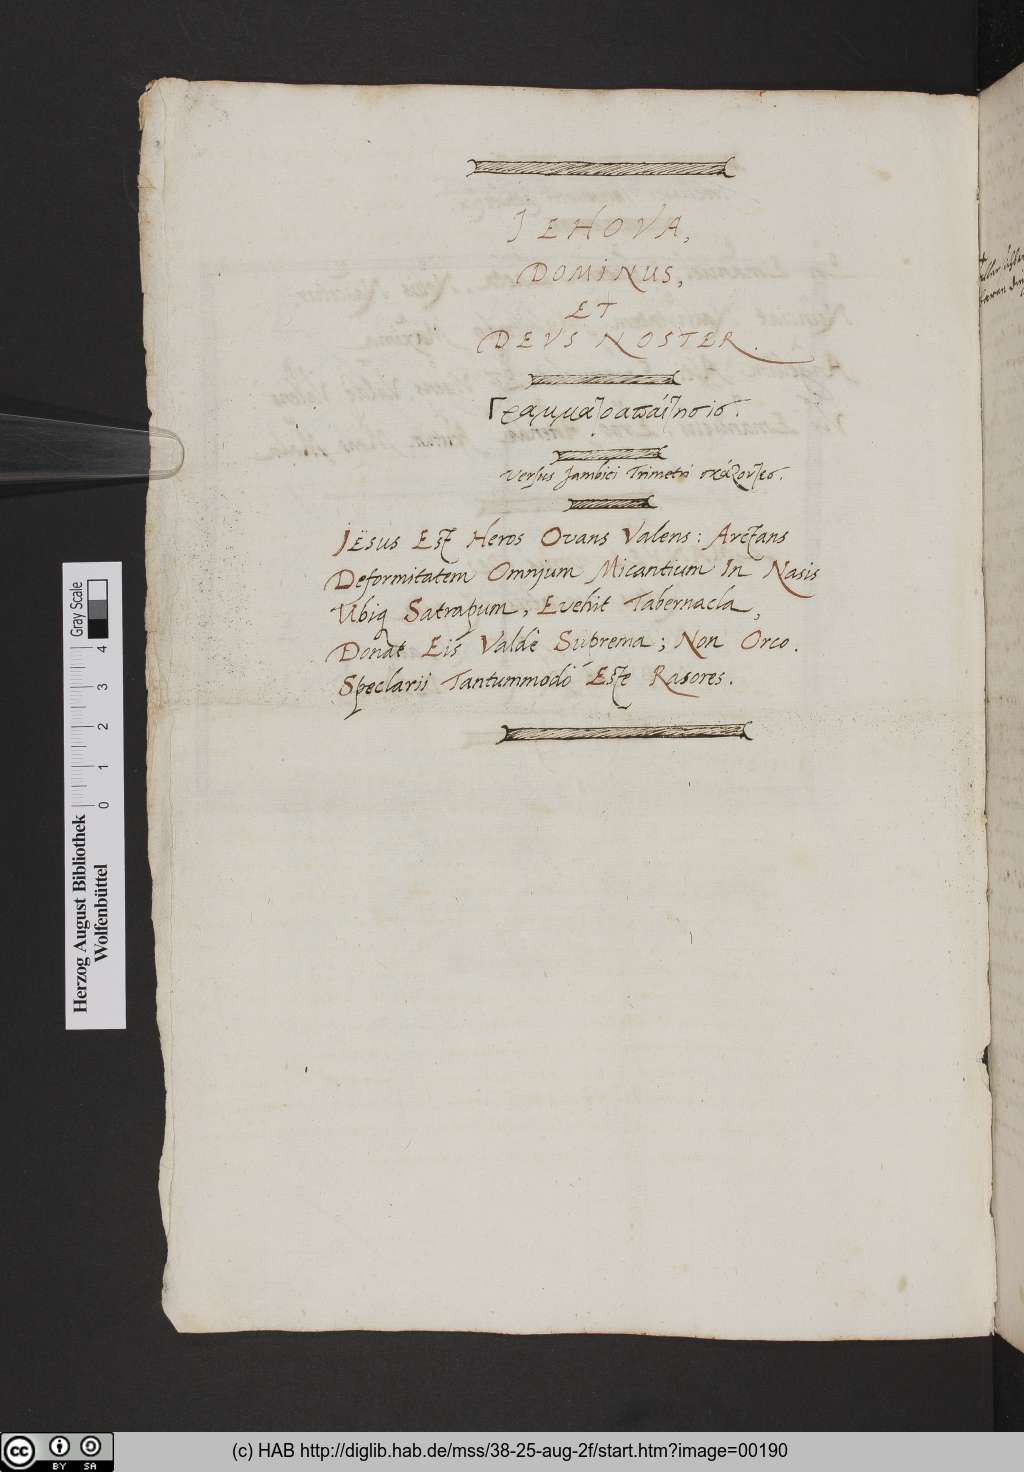 JEHOVA,
DOMINUS,
ET
DEVS NOSTER.
Γραμματοαπαίτησις.
Versus Jambici Trimetri σκάζοντες.
JËsus Est Heros Ovans Valens: Arctans
Deformitatem Omnjum Micantium In Nasis
Ubiq Satrapum, Evehit Tabernacla,
Donat Eis Valdè Suprema; Non Orco.
Speclarii Tantummodò Este Rasores.
Gray Scale
0 1 2 3 4
Herzog August Bibliothek
Wolfenbüttel
cc BY SA
(c) HAB http://diglib.hab.de/mss/38-25-aug-2f/start.htm?image=00190